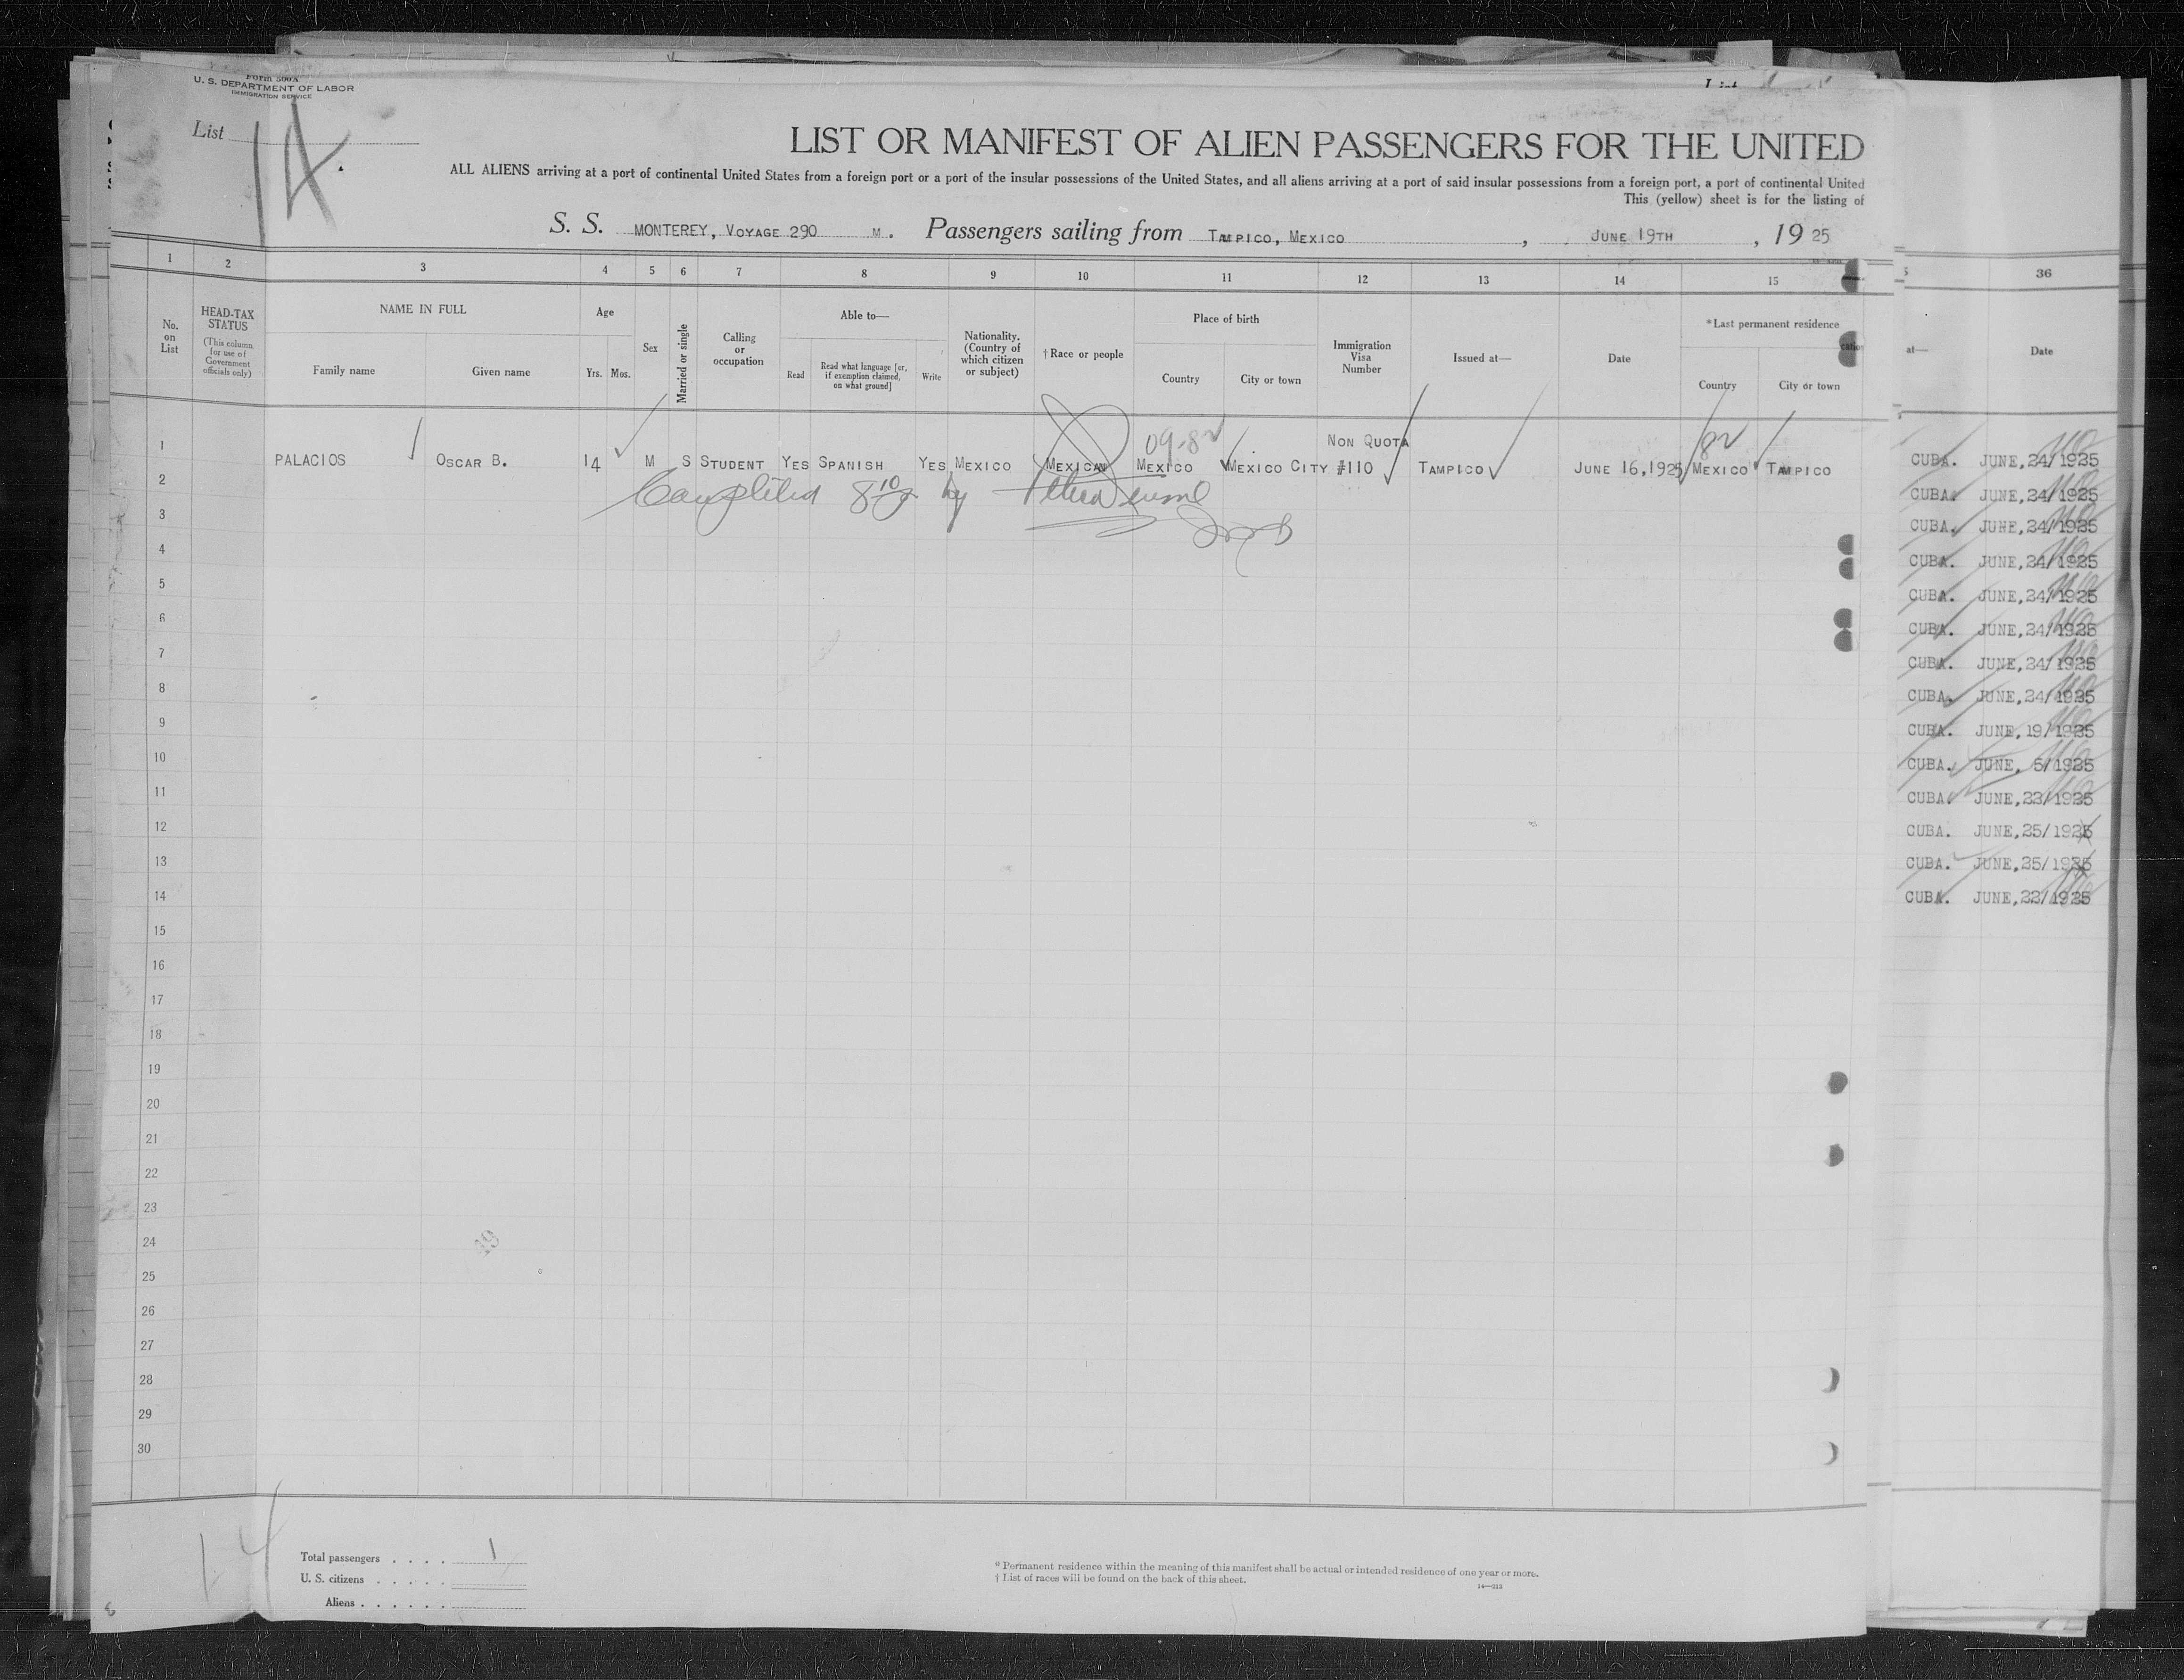 Form 500A
U. S. DEPARTMENT OF LABOR
IMMIGRATION SERVICE
List
List 1A
LIST OR MANIFEST OF ALIEN PASSENGERS FOR THE UNITED
ALL ALIENS arriving at a port of continental United States from a foreign port or a port of the insular possessions of the United States, and all aliens arriving at a port of said insular possessions from a foreign port, a port of continental United
This (yellow) sheet is for the listing of
S. S. MONTEREY, VOYAGE 290 M. Passengers sailing from TAMPICO, MEXICO , JUNE 19TH , 19 25
1 2 3 4 5 6 7 8 9 10 11 12 13 14 15 36
No. on List
HEAD-TAX STATUS
(This column for use of Government officials only)
NAME IN FULL
Family name Given name
Age
Yrs. Mos.
Sex
Married or single
Calling or occupation
Able to—
Read
Read what language [or, if exemption claimed, on what ground]
Write
Nationality. (Country of which citizen or subject)
† Race or people
Place of birth
Country City or town
Immigration Visa Number
Issued at—
Date
* Last permanent residence
Country City or town
at—
Date
09-82 NON QUOTA 82
1 PALACIOS OSCAR B. 14 M S STUDENT YES SPANISH YES MEXICO MEXICAN MEXICO MEXICO CITY #110 TAMPICO JUNE 16, 1925 MEXICO TAMPICO
Completed by
2
3
4
5
6
7
8
9
10
11
12
13
14
15
16
17
18
19
20
21
22
23
24
25
26
27
28
29
30
CUBA. JUNE,24/1925
CUBA. JUNE,24/1925
CUBA. JUNE,24/1925
CUBA. JUNE,24/1925
CUBA. JUNE,24/1925
CUBA. JUNE,24/1925
CUBA. JUNE,24/1925
CUBA. JUNE,24/1925
CUBA. JUNE,19/1925
CUBA. JUNE, 5/1925
CUBA. JUNE,23/1925
CUBA. JUNE,25/1925
CUBA. JUNE,25/1925
CUBA. JUNE,22/1925
49
14
Total passengers . . . . 1
U. S. citizens . . . . .
Aliens . . . . . .
* Permanent residence within the meaning of this manifest shall be actual or intended residence of one year or more.
† List of races will be found on the back of this sheet.
14—213